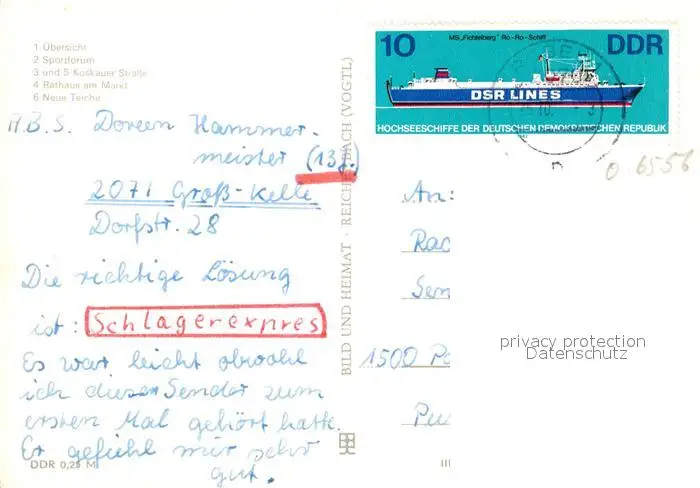 1 Übersicht
2 Sportforum
3 und 5 Koskauer Straße
4 Rathaus am Markt
6 Neue Teiche
A.B.S. Doreen Hammer-
meister (13J.)
2071 Groß-Kelle
Dorfstr. 28
Die richtige Lösung
ist: Schlagerexpres
Es war leicht obwohl
ich diesen Sender zum
ersten Mal gehört hatte.
Er gefiehl mir sehr
gut.
DDR 0,25 M
BILD UND HEIMAT · REICHENBACH (VOGTL)
MS „Fichtelberg" Ro-Ro-Schiff
10 DDR
DSR LINES
HOCHSEESCHIFFE DER DEUTSCHEN DEMOKRATISCHEN REPUBLIK
06556
An:
Rad
Sen
1500 Po
privacy protection
Datenschutz
III